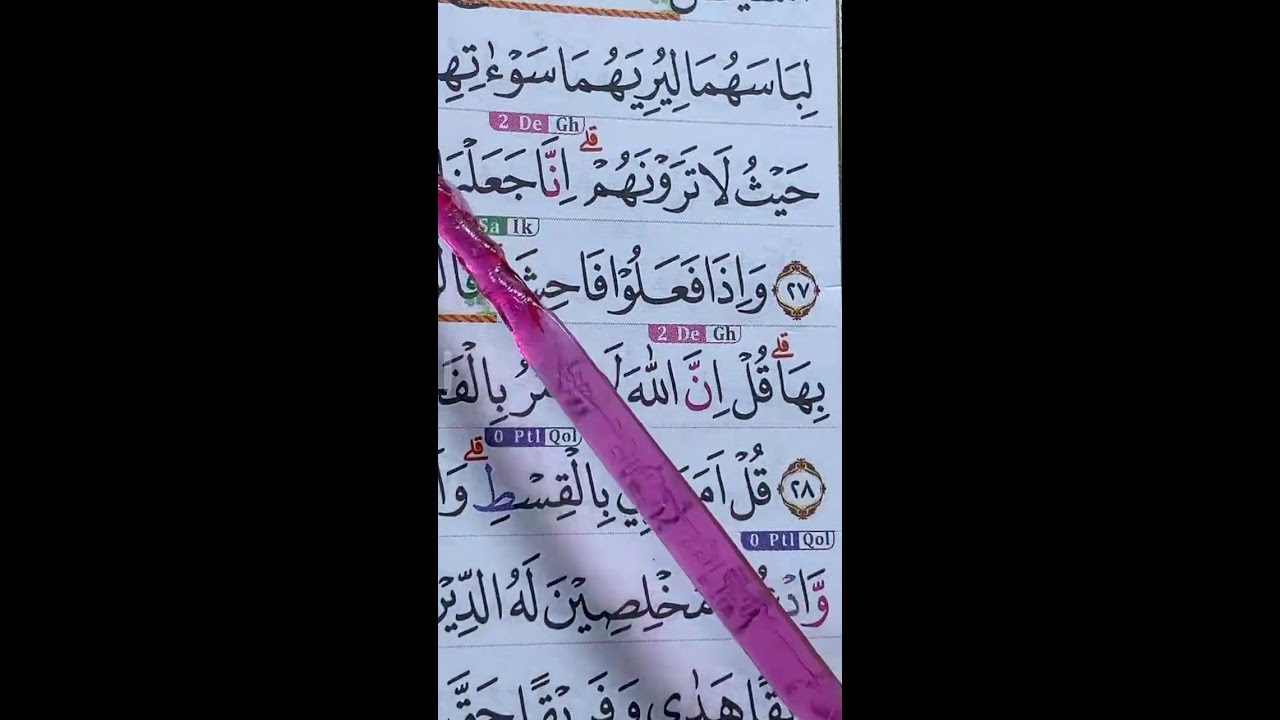 لِبَاسَهُمَا لِيُرِيَهُمَا سَوْءٰتِهِ
2 De Gh
حَيْثُ لَا تَرَوْنَهُمْ ۗ اِنَّا جَعَلْنَا
Sa Ik
٢٧ وَاِذَا فَعَلُوْا فَاحِشَ
2 De Gh
بِهَا ۗ قُلْ اِنَّ اللّٰهَ لَا بِالْفَ
0 Ptl Qol
٢٨ قُلْ اَمَ بِالْقِسْطِ ۗ
0 Ptl Qol
مُخْلِصِيْنَ لَهُ الدِّيْنَ
هَدٰى وَفَرِيْقًا حَقَّ